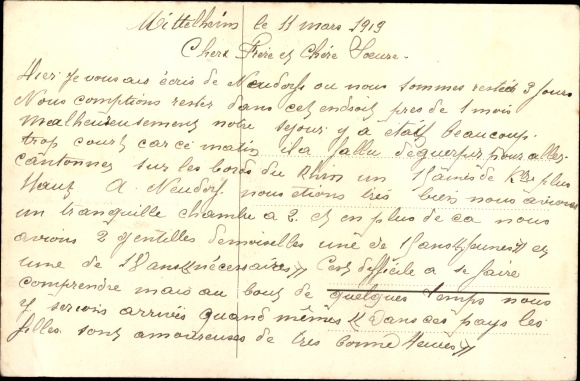 Mittelheim le 11 mars 1919
Chers Frère et Chère Soeur.
Hier je vous ais écris de Neudorf ou nous sommes restés 3 jours
Nous comptions rester dans cet endroit pres de 1 mois
malheureusement notre sejour y a était beaucoup
trop court car ce matin il a fallu deguerpir pour aller
cantonner sur les bords du Rhin un 15aine de Km plus
Haut A Neudorf nous etions très bien nous avions
un tranquille chambre a 2. et en plus de ca nous
avions 2 gentilles demoiselles une de 15 ans et
une de 18 ans « nécessaires » C'est difficile a se faire
comprendre mais au bout de quelques temps nous
y serions arrivés quand mêmes « Dans ces pays les
filles sont amoureuses de très bonne Heures »